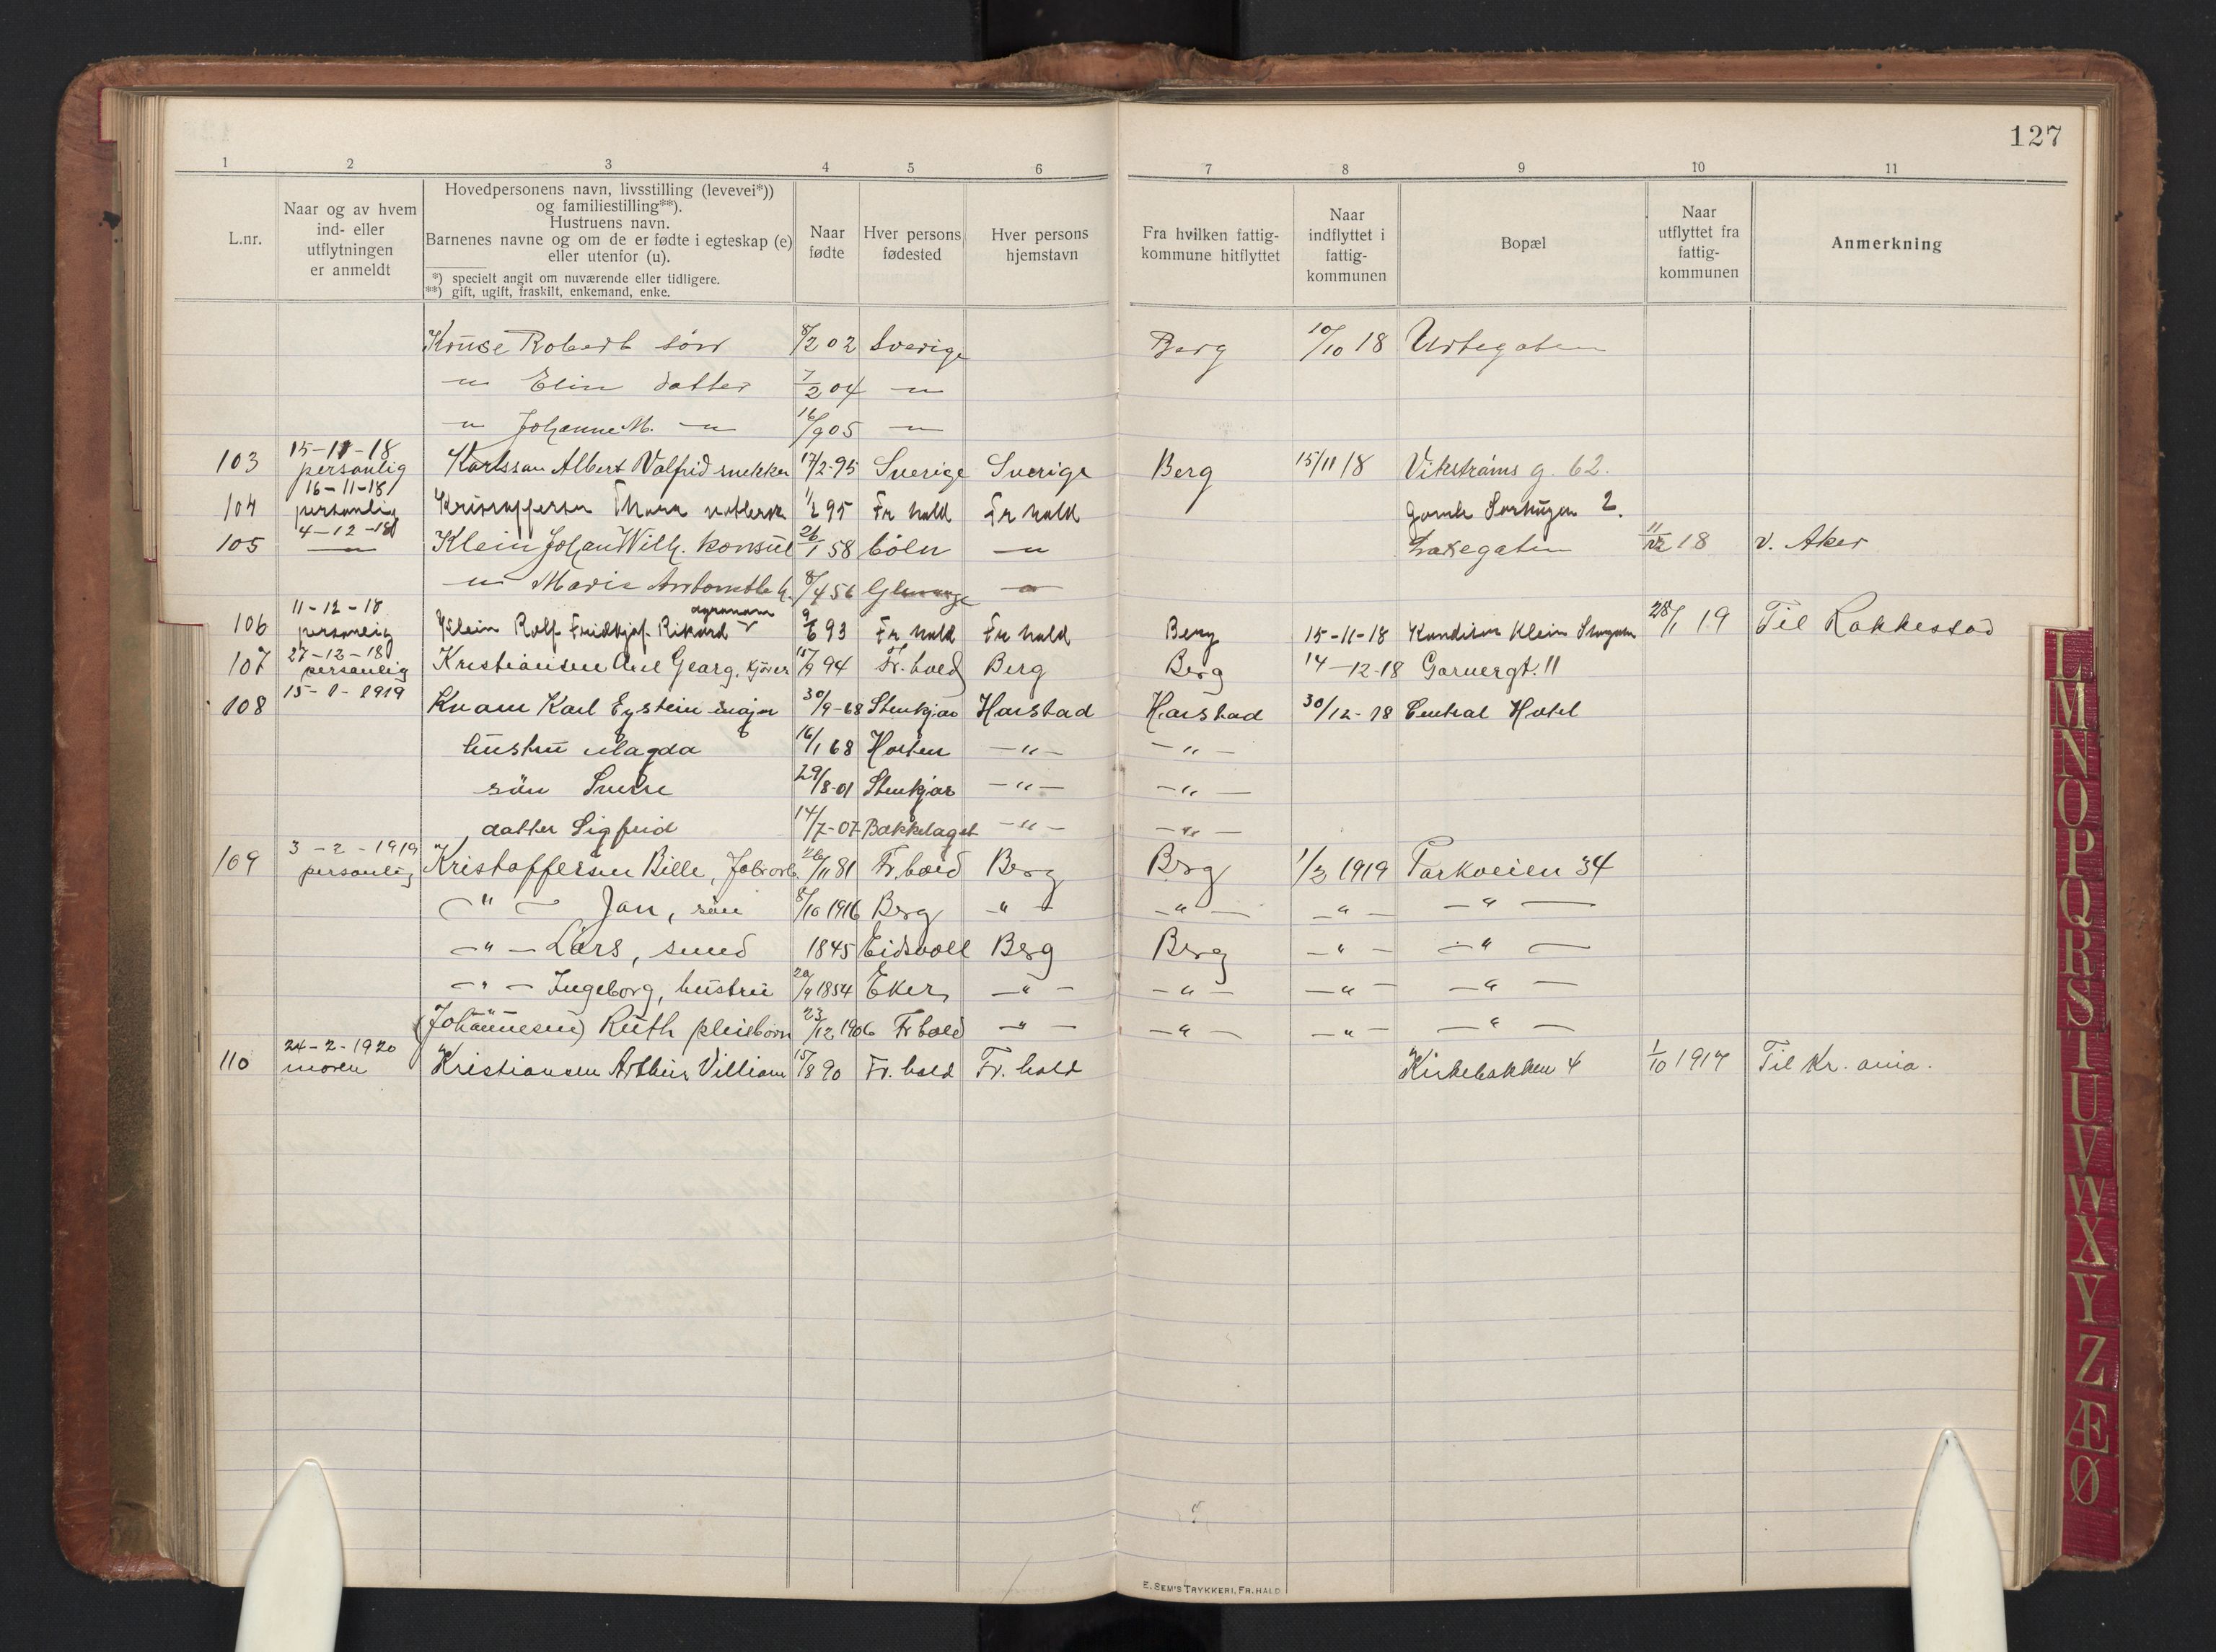 127
1 2 3 4 5 6 7 8 9 10 11
L.nr.
Naar og av hvem
ind- eller
utflytningen
er anmeldt
Hovedpersonens navn, livsstilling (levevei*))
og familiestilling**).
Hustruens navn.
Barnenes navne og om de er fødte i egteskap (e)
eller utenfor (u).
*) specielt angit om nuværende eller tidligere.
**) gift, ugift, fraskilt, enkemand, enke.
Naar
fødte
Hver persons
fødested
Hver persons
hjemstavn
Fra hvilken fattig-
kommune hitflyttet
Naar
indflyttet i
fattig-
kommunen
Bopæl
Naar
utflyttet fra
fattig-
kommunen
Anmerkning
Kruse Robert sön 8/2 02 Sverige Berg 10/10 18 Urtegaten
—"— Elin datter 7/2 04 —"—
—"— Johanne M. —"— 16/9 05 —"—
15-11-18
103 personlig Karlsson Albert Valfrid snekker 17/2-95 Sverige Sverige Berg 15/11 18 Vikströms g. 62.
16-11-18
104 personlig Kristoffersen Thora 95 Fr hald Fr hald Gamle 2.
4-12-18
105 —"— Klein Johan Wilh. konsul 26/1 58 Cöln —"— Laxegaten 11/12 18 v. Aker
—"— Marie h. 8/4 56 —"—
11-12-18 agronom
106 personlig Klein Rolf Fridtjof Rikard 9/6 93 Fr hald Fr hald Berg 15-11-18 Konditor Klein 28/1 19 Til Rakkestad
27-12-18
107 personlig Kristiansen Axel Georg, kjörer 94 Fr. hald Berg Berg 14-12-18 Garvergt. 11
15-1-1919
108 Knam Karl Eystein major 30/9-68 Stenkjær Harstad Harstad 30/12-18 Central Hotel
hustru Magda 16/1 68 Horten —"— —"—
sön Sverre 29/8-01 Stenkjær —"— —"—
datter Sigfrid 14/7-07 Bækkelaget —"— —"—
3-2-1919
109 personlig Kristoffersen Bille, 26/11 81 Fr. hald Berg Berg 1/2 1919 Parkveien 34
—"— Jan, sön 8/10 1916 Berg —"— —"— —"— —"—
—"— Lars, smed 1845 Eidsvoll Berg Berg —"— —"—
—"— Ingeborg, hustru 1854 Eker —"— —"— —"— —"—
(Johannesen) Ruth pleiebarn 23/12 1906 Fr hald —"— —"— —"— —"—
24-2-1920
110 moren Kristiansen Arthur Villiam 15/8 90 Fr. hald Fr. hald Kirkebakken 4 1/10 1917 Til Kr. ania.
E. SEM'S TRYKKERI, FR.HALD
L
M
N
O
P
Q
R
S
T
U
V
W
X
Y
Z
Æ
Ø